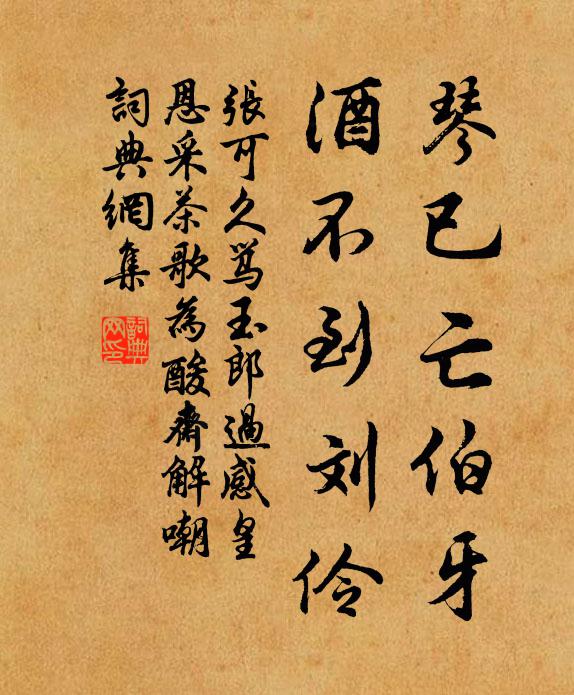 琴已亡伯牙
酒不到刘伶
張可久骂玉郎過感皇
恩采茶歌為酸齋解嘲
詞典網集
詞典网印